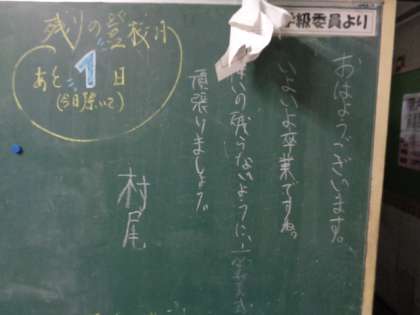 学級委員より
おはようございます。
いよいよ卒業ですね。
いの残らないように、
頑張りましょう。
村尾
残りの登校日
あと1日
(今日除いて)